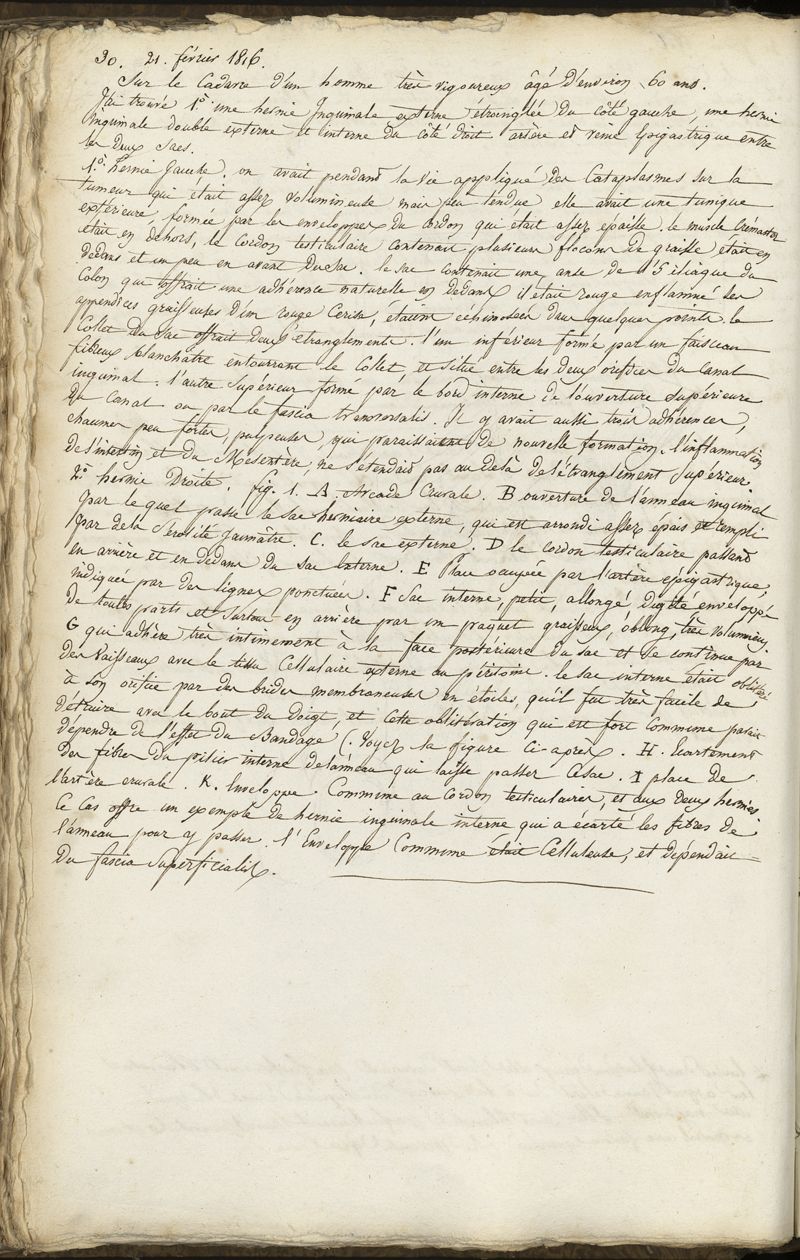 30. 21. février 1816.
Sur le Cadavre d'un homme très vigoureux âgé d'environ 60 ans.
J'ai trouvé 1° une hernie Inguinale externe étranglée du côté gauche, une hernie
Inguinale double externe et interne du côté droit artère et veine Epigastrique entre
les deux sacs.
1°. hernie Gauche. on avait pendant la vie appliqué des Cataplasmes sur la
tumeur qui était assez volumineuse mais peu tendue elle avait une tunique
extérieure, formée par les enveloppes du cordon qui était assez épaisse. le muscle Crémaster
était en dehors, le Cordon testiculaire contenait plusieurs flocons de graisse était en
dedans et un peu en avant du sac. le sac contenait une anse de l'S iliaque du
Colon qui offrait une adhérence naturelle en dedans il était rouge enflammé ses
appendices graisseuses d'un rouge Cerise, étaient echimosées dans quelques points. le
Collet du sac offrait deux étranglements. l'un inférieur formé par un faisceau
fibreux blanchâtre entourrant le Collet, et situé entre les deux orifices du Canal
inguinal. l'autre supérieur formé par le bord interne de l'ouverture supérieure
du canal ou par le fascia transversalis. Il y avait aussi trois adhérences,
charnues peu fortes, pulpeuses, qui paraissaient de nouvelle formation. l'inflammation
de l'intestin et du Mésentère, ne s'étendait pas au delà de l'étranglement supérieur.
2° hernie Droite. fig. 1. A. Arcade Crurale. B ouverture de l'anneau inguinal
par lequel passe le sac herniaire externe, qui est arrondi assez épais et rempli
par de la Sérosité jaunâtre. C. le sac externe. D le cordon testiculaire passant
en arrière et en dedans du sac externe. E Place occupée par l'artère épigastrique,
indiquée par des lignes ponctuées. F Sac interne, petit, allongé enveloppé
de toutes parts et surtout en arrière par un paquet graisseux, oblong, très volumineux
G qui adhère très intimement à la face postérieure du sac et se continue par
des vaisseaux avec le tissu Cellulaire externe au péritoine. le sac interne était oblitéré
à son orifice par des brides membraneuses en étoiles, qu'il fut très facile de
détruire avec le bout du doigt, et cette oblitération qui est fort commune parait
dépendre de l'effet du Bandage (Voyez la figure Ci-après. H. Ecartement
des fibres du pilier interne de l'anneau qui laisse passer le sac. I place de
l'artère crurale. K. Enveloppe. Commune au Cordon testiculaire, et aux deux hernies
Ce Cas offre un exemple de hernie inguinale interne qui a écarté les fibres de
l'anneau pour y passer. l'Enveloppe Commune était Celluleuse, et dépendait
du fascia Superficialis.